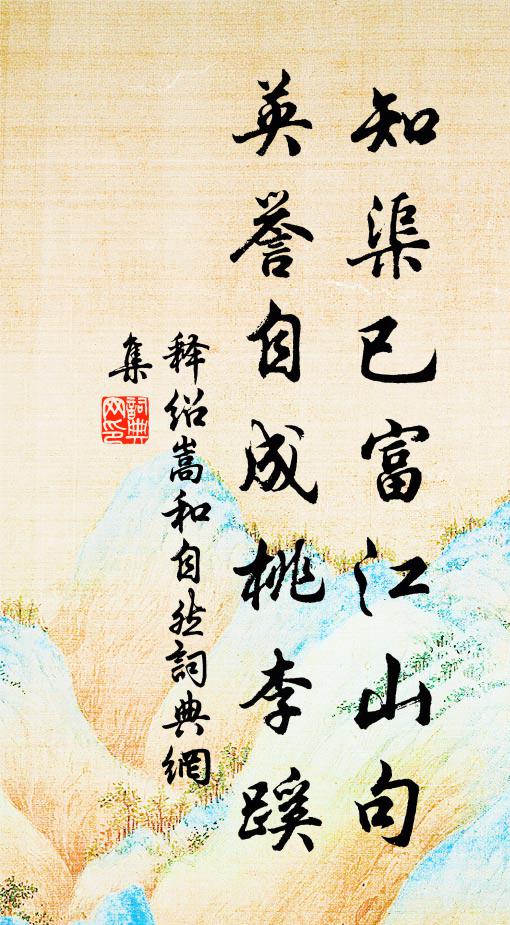 知渠已富江山句
英誉自成桃李蹊
释绍嵩和自然詞典網
集
詞典网印